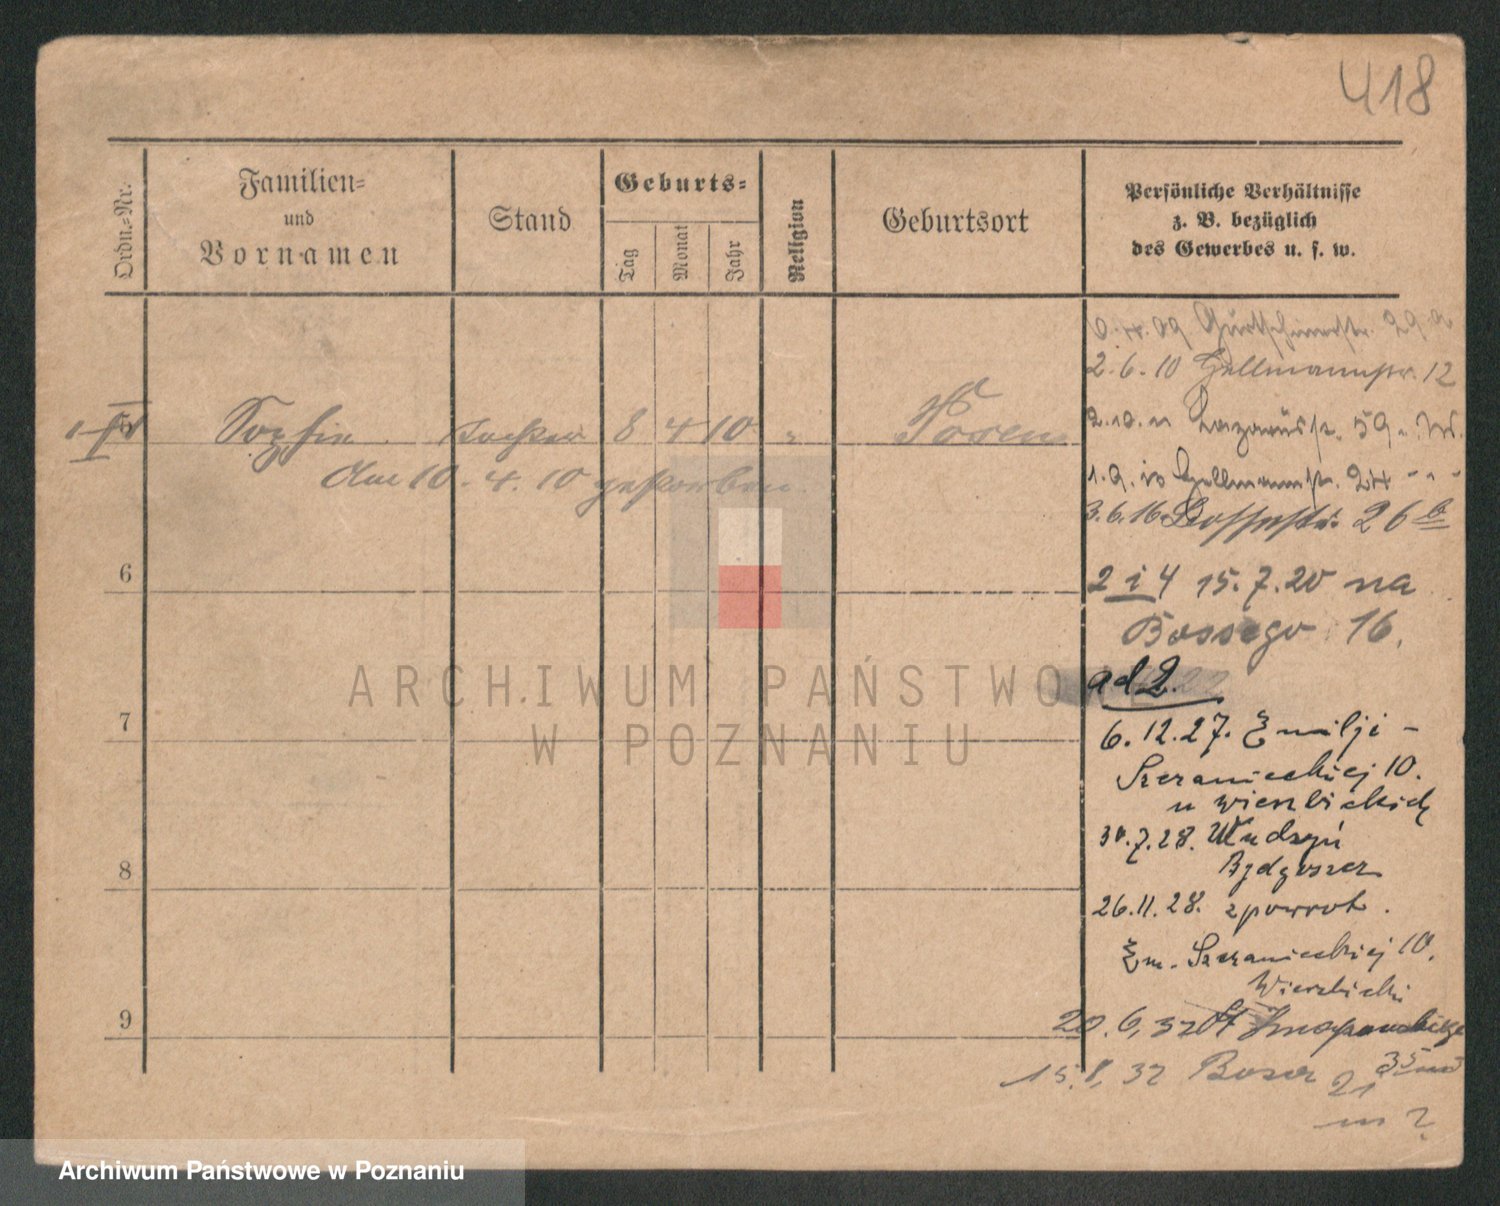 418
Ordn.-Nr.
Familien-
und
Vornamen
Stand
Geburts-
Tag
Monat
Jahr
Religion
Geburtsort
Persönliche Verhältnisse
z. B. bezüglich
des Gewerbes u. s. w.
5 Sophie Tochter 8 4 10 Posen
Am 10. 4. 10 gestorben.
6
7
8
9
6.4.09 Gurtschinerstr. 29 a
2.6.10 Hellmannstr. 12
2.10. Lazarusstr. 59
1.9. Hellmannstr. 24
3.6.16 26 b
2 i 4 15.7.20 na
Bossego 16.
ad 2.
6.12.27. Emilji
Szczanieckiej 10.
u Wierzbickich
30.7.28. Wudzyń
Bydgoszcz
26.11.28. zpowrot.
Em. Szczanieckiej 10.
Wierzbicki
20.6.32 Knapowskiego
35
15.8.32 Bosa
21
m ?
ARCHIWUM PAŃSTWOWE
W POZNANIU
Archiwum Państwowe w Poznaniu